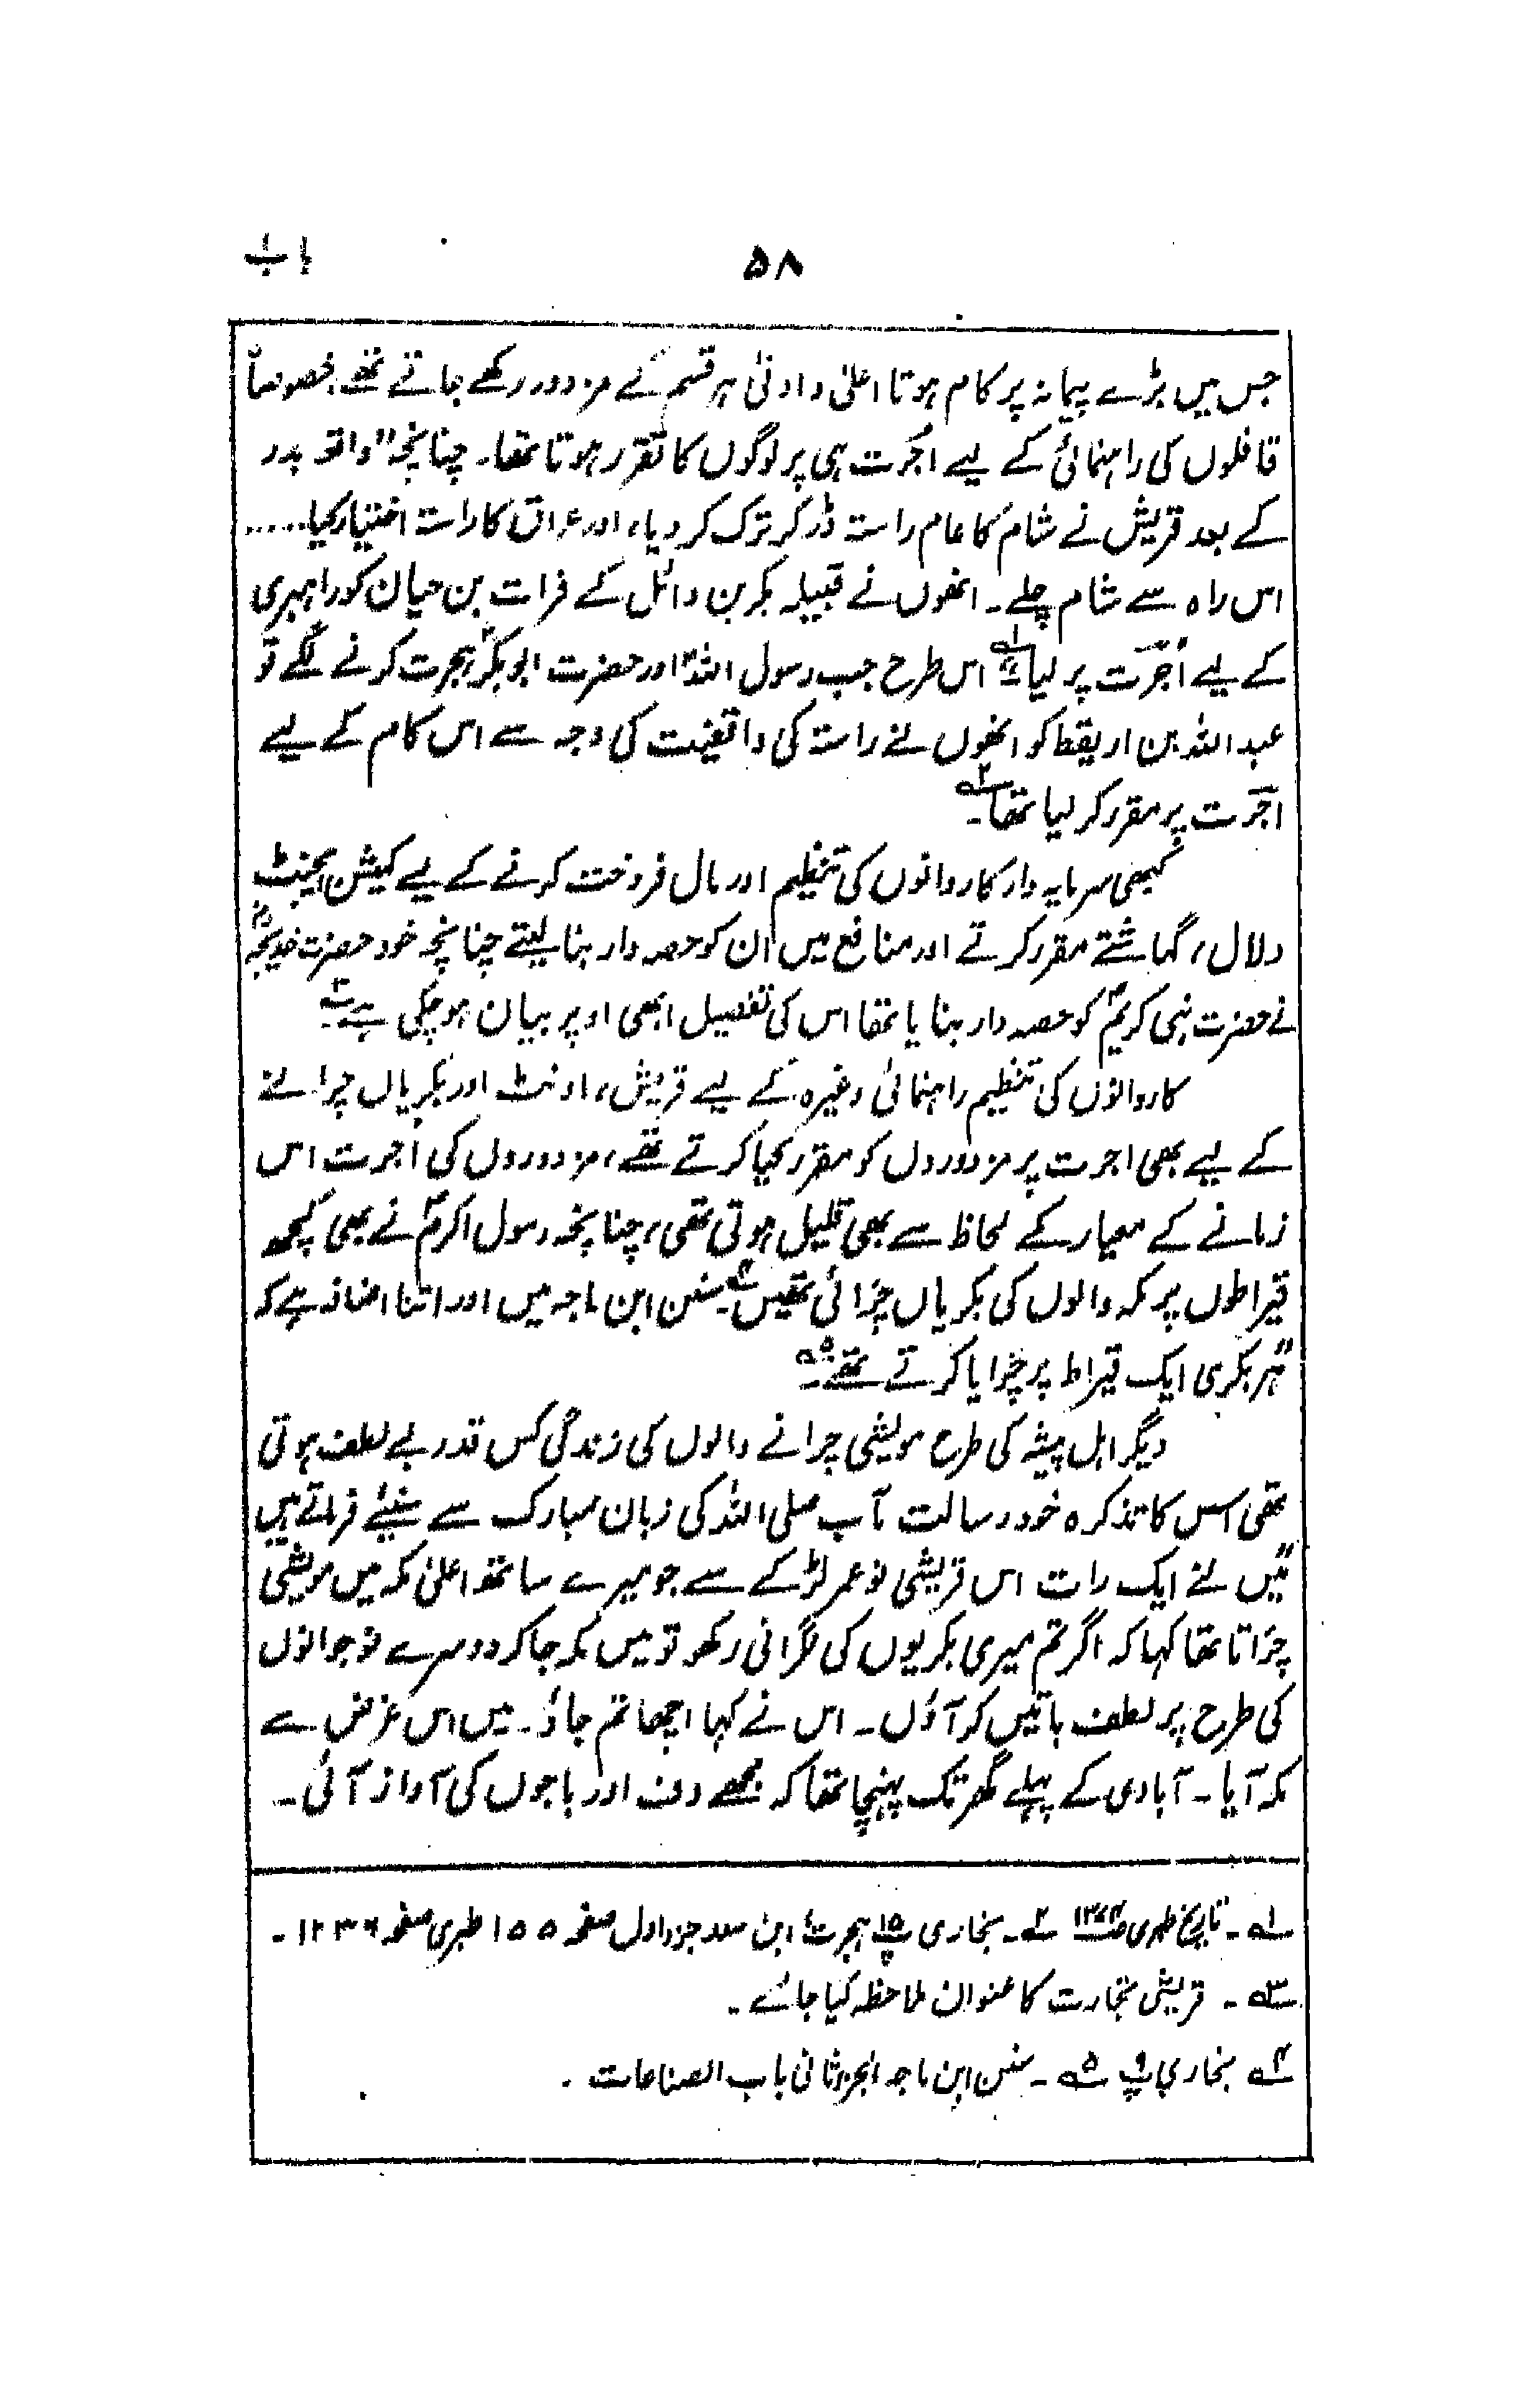 ۵۸
باب
جس میں بڑے پیمانہ پر کام ہوتا اعلیٰ و ادنیٰ ہر قسم کے مزدور رکھے جاتے تھے۔ خصوصاً
قافلوں کی راہنمائی کے لیے اُجرت ہی پر لوگوں کا تقرر ہوتا تھا۔ چنانچہ "واقعہ بدر
کے بعد قریش نے شام کا عام راستہ ڈر کر ترک کر دیا، اور عراق کا راستہ اختیار کیا.....
اس راہ سے شام چلے۔ انھوں نے قبیلہ بکر بن وائل کے فرات بن حیان کو راہبری
کے لیے اُجرَت پر لیا" ۱؎ اس طرح جب رسول اللہؐ اور حضرت ابوبکرؓ ہجرت کرنے لگے تو
عبد اللہ بن اریقط کو انھوں نے راستہ کی واقفیت کی وجہ سے اس کام کے لیے
اجرَت پر مقرر کر لیا تھا۔ ۲؎
کبھی سرمایہ دار کاروانوں کی تنظیم اور مال فروخت کرنے کے لیے کمیشن ایجنٹ
دلال، گماشتے مقرر کرتے اور منافع میں ان کو حصہ دار بنا لیتے چنانچہ خود حضرت خدیجہؓ
نے حضرت نبی کریمؐ کو حصہ دار بنایا تھا اس کی تفصیل ابھی اوپر بیان ہو چکی ہے۔ ۳؎
کاروانوں کی تنظیم راہنمائی وغیرہ کے لیے قریش، اونٹ اور بکریاں چرانے
کے لیے بھی اجرت پر مزدوروں کو مقرر کیا کرتے تھے، مزدوروں کی اُجرت اس
زمانے کے معیار کے لحاظ سے بھی قلیل ہوتی تھی، چنانچہ رسول اکرمؐ نے بھی کچھ
قیراطوں پر مکہ والوں کی بکریاں چَرائی تھیں۔ ۴؎ سنن ابن ماجہ میں اور اتنا اضافہ ہے کہ
"ہر بکری ایک قیراط پر چَرایا کرتے تھے۔ ۵؎
دیگر اہل پیشہ کی طرح مویشی چرانے والوں کی زندگی کس قدر بے لطف ہوتی
تھی اس کا تذکرہ خود رسالت آب صلی اللہ کی زبان مبارک سے سنیئے فرماتے ہیں
"میں نے ایک رات اس قریشی نو عمر لڑکے سے جو میرے ساتھ اعلیٰ مکہ میں مویشی
چَراتا تھا کہا کہ اگر تم میری بکریوں کی نگرانی رکھو تو میں مکہ جا کر دوسرے نوجوانوں
کی طرح پر لطف باتیں کر آؤں۔ اس نے کہا اچھا تم جاؤ۔ میں اس غرض سے
مکہ آیا۔ آبادی کے پہلے گھر تک پہنچا تھا کہ مجھے دف اور باجوں کی آواز آئی۔
۱؎۔ تاریخ طبری ص۱۳۷۴ ۲؎۔ بخاری پ ۱۵ ہجرت؛ ابن سعد جزء اول صفحہ ۱۵۵ طبری صفحہ ۱۲۳۶۔
۳؎۔ قریش تجارت کا عنوان ملاحظہ کیا جائے۔
۴؎ بخاری پ ۹ ۵؎۔ سنن ابن ماجہ الجزء ثانی باب الصناعات۔